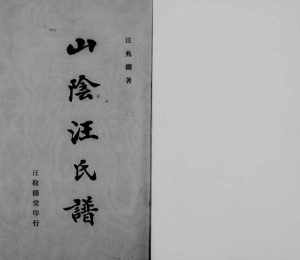 汪兆鏞著
山陰汪氏譜
汪敬德堂印行